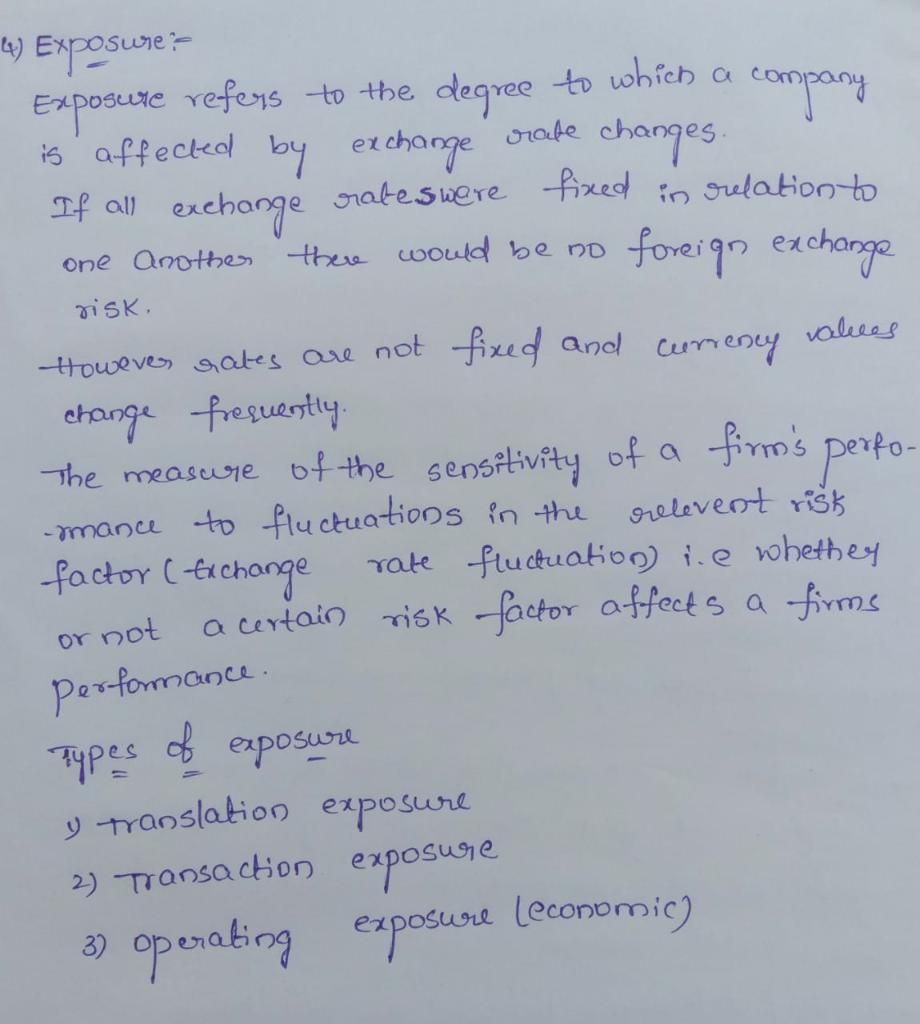 4) Exposure:-
Exposure refers to the degree to which a company
is affected by exchange rate changes.
If all exchange rates were fixed in relation to
one another there would be no foreign exchange
risk.
However rates are not fixed and currency values
change frequently.
The measure of the sensitivity of a firm's perfo-
-rmance to fluctuations in the relevent risk
factor (Exchange rate fluctuation) i.e whether
or not a certain risk factor affects a firms
performance.
Types of exposure
1) translation exposure
2) Transaction exposure
3) operating exposure (economic)